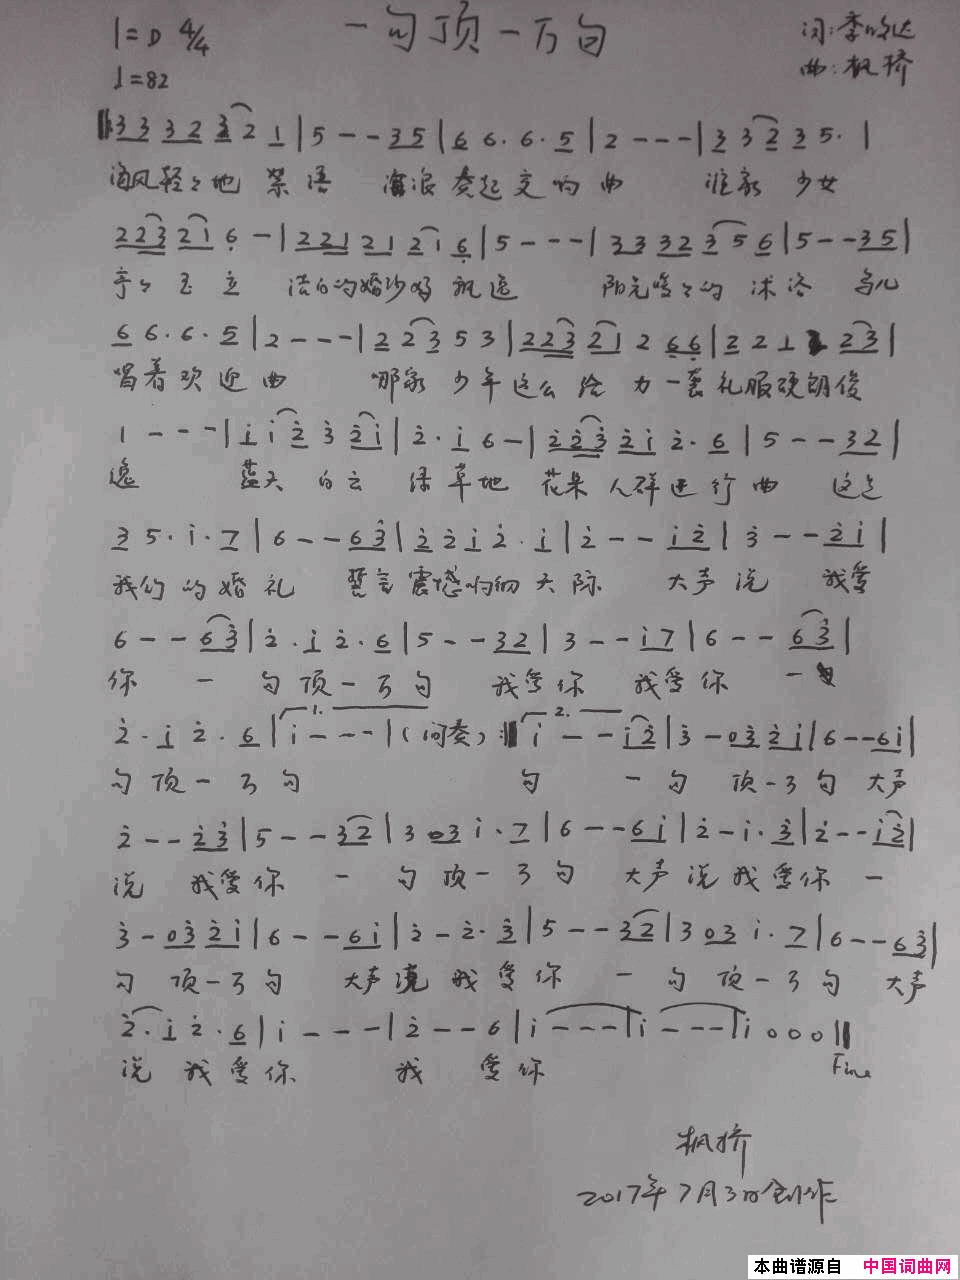 1=D 4/4 一句顶一万句 词:李
♩=82 曲:枫桥
3 3 3 2 3 2 1 | 5 - - 3 5 | 6 6· 6· 5 | 2 - - - | 3 3 2 3 5· |
海风轻々地 语 海浪奏起交响曲 谁家 少女
2 2 3 2 1 6 - | 2 2 1 2 1 2 1 6 | 5 - - - | 3 3 3 2 3 5 6 | 5 - - 3 5 |
亭々玉立 洁白的婚纱 飘逸 阳光暖々的沐浴 鸟儿
6 6· 6· 5 | 2 - - - | 2 2 3 5 3 | 2 2 3 2 1 2 6 6 | 2 2 1 2 3 |
唱着欢迎曲 哪家 少年这么给力一套礼服硬朗俊
1 - - - | i i 2 3 2 i | 2· i 6 - | 2 2 3 2 i 2· 6 | 5 - - 3 2 |
逸 蓝天 白云 绿草地 花朵人群进行曲 这是
3 5· i· 7 | 6 - - 6 3 | 2 2 i 2· i | 2 - - i 2 | 3 - - 2 i |
我们的婚礼 誓言震撼 天际 大声说 我爱
6 - - 6 3 | 2· i 2· 6 | 5 - - 3 2 | 3 - - i 7 | 6 - - 6 3 |
你 一句顶一万句 我爱你 我爱你 一
2· i 2· 6 | 1. i - - - | (间奏) :‖ 2. i - - i 2 | 3 - 0 3 2 i | 6 - - 6 i |
句顶一万句 句 一句 顶一万句 大声
2 - - 2 3 | 5 - - 3 2 | 3 0 3 i· 7 | 6 - - 6 i | 2 - i· 3 | 2 - - i 2 |
说 我爱你 一句顶一万句 大声说我爱你 一
3 - 0 3 2 i | 6 - - 6 i | 2 - 2· 3 | 5 - - 3 2 | 3 0 3 i· 7 | 6 - - 6 3 |
句 顶一万句 大声说 我爱你 一句顶一万句 大声
2· i 2· 6 | i - - - | 2 - - 6 | i - - - | i - - - | i 0 0 0 ‖
说我爱你 我爱你 Fine
枫桥
2017年7月3日创作
本曲谱源自 中国词曲网